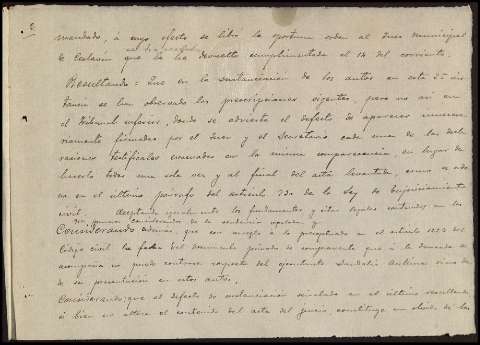 2
mandado, á cuyo efecto se libró la oportuna orden al Juez municipal
de que la ha devuelto cumplimentada el 14 del corriente.
Resultando: Que en la sustanciación de los autos en esta 2ª ins
tancia se han observado las prescripciones vigentes, pero no así en
el Tribunal inferior, donde se advierte el defecto de aparecer
firmadas por el Juez y el Secretario cada una de las decla
raciones testificales evacuadas en la misma comparecencia, en lugar de
hacerlo todas una sola vez y al final del acta levantada, como se orde
na en el último párrafo del artículo 730 de la Ley de Enjuiciamiento
civil. Aceptando igualmente los fundamentos y citas legales contenidos en los
de la sentencia apelada, y
Considerando además, que con arreglo á lo preceptuado en el artículo 1227 del
Código civil la fecha del documento privado de compraventa que á la demanda se
acompaña no puede contarse respecto del ejecutante sino desde
de su presentación en estos autos.
Considerando: que el defecto de sustanciación señalado en el último resultando
si bien no altera el contenido del acta del juicio, constituye un olvido de las